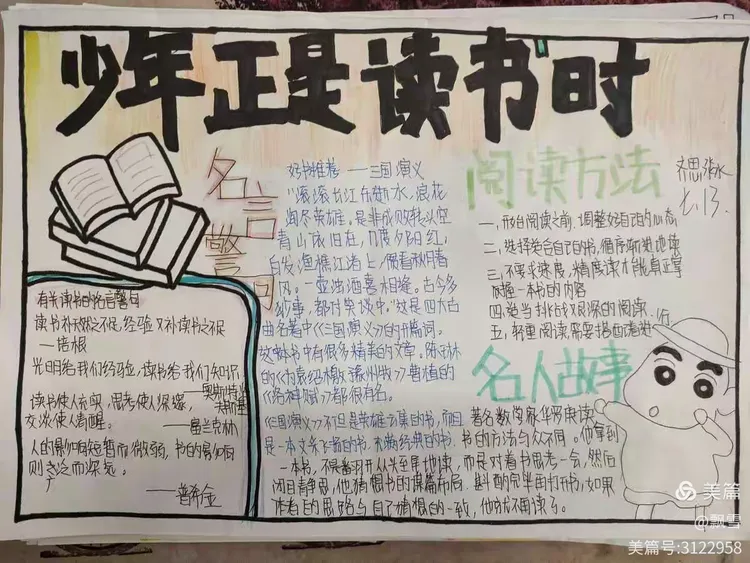 少年正是读书时
名言警句
有关读书的名言警句
读书补天然之不足,经验又补读书之不足
—培根
光明给我们经验,读书给我们知识
—奥斯特洛夫斯基
读书使人充实,思考使人深邃,
交谈使人清醒。
—富兰克林
人的影响短暂而微弱,书的影响
则广泛而深远。
—普希金
好书推荐——三国演义
"滚滚长江东逝水,浪花
淘尽英雄。是非成败转头空
青山依旧在,几度夕阳红,
白发渔樵江渚上,惯看秋月春
风。一壶浊酒喜相逢。古今多
少事,都付笑谈中。"这是四大古
典名著中《三国演义》的开篇词。
这本书中有很多精美的文章。陈琳
的《为袁绍檄豫州文》曹植的
《洛神赋》都很有名。
《三国演义》不但是英雄云集的书,而且
是一本文采飞扬的书,充满经典的书.
阅读方法
一,开始阅读之前,调整好自己的心态
二,选择类合自己的书,循序渐进地读
三,不要求速度,精度读才能真正掌
握一本书的内容
四,适当挑战艰深的阅读.
五,轻重阅读需要搭配着进行
名人故事
著名数学家华罗庚读
书的方法与众不同。他拿到
一本书,不是翻开从头至尾地读,而是对着书思考一会,然后
闭目静思,他猜想书的谋篇布局,斟酌完毕再打开书,如果
作者的思路与自己猜想的一致,他就不再读了。
七.13
美篇
@飘雪
美篇号:3122958